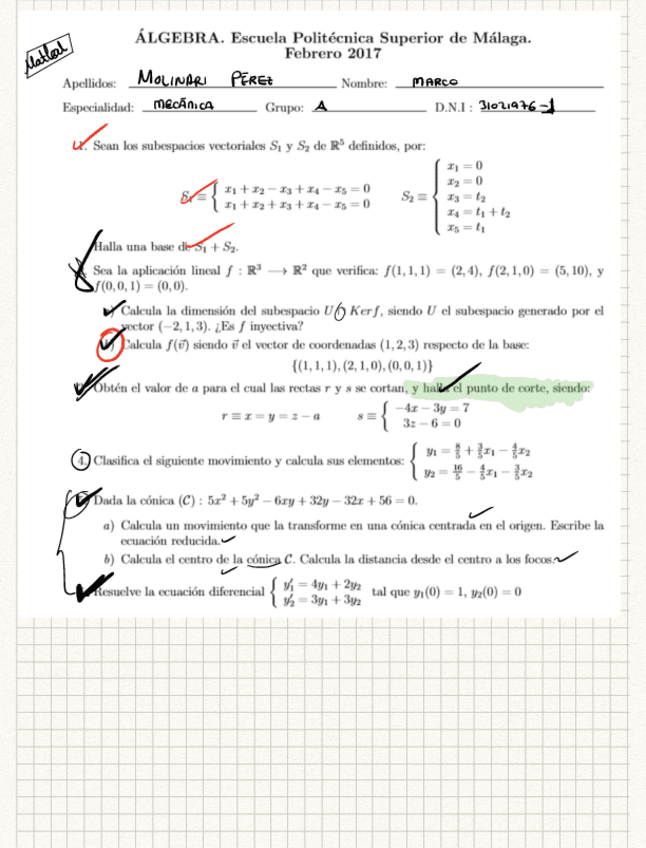 Matlab
ÁLGEBRA. Escuela Politécnica Superior de Málaga.
Febrero 2017
Apellidos: MOLINARI PÉREZ Nombre: MARCO
Especialidad: MECÁNICA Grupo: A D.N.I : 31021976-J
1. Sean los subespacios vectoriales S₁ y S₂ de ℝ⁵ definidos, por:
S₁ ≡ { x₁ + x₂ − x₃ + x₄ − x₅ = 0
x₁ + x₂ + x₃ + x₄ − x₅ = 0
S₂ ≡ { x₁ = 0
x₂ = 0
x₃ = t₂
x₄ = t₁ + t₂
x₅ = t₁
Halla una base de S₁ + S₂.
Sea la aplicación lineal f : ℝ³ ⟶ ℝ² que verifica: f(1, 1, 1) = (2, 4), f(2, 1, 0) = (5, 10), y
f(0, 0, 1) = (0, 0).
Calcula la dimensión del subespacio U ∩ Ker f, siendo U el subespacio generado por el
vector (−2, 1, 3). ¿Es f inyectiva?
Calcula f(v⃗) siendo v⃗ el vector de coordenadas (1, 2, 3) respecto de la base:
{(1, 1, 1), (2, 1, 0), (0, 0, 1)}
Obtén el valor de a para el cual las rectas r y s se cortan, y halla el punto de corte, siendo:
r ≡ x = y = z − a s ≡ { −4x − 3y = 7
3z − 6 = 0
4. Clasifica el siguiente movimiento y calcula sus elementos: { y₁ = 8/5 + 3/5 x₁ − 4/5 x₂
y₂ = 16/5 − 4/5 x₁ − 3/5 x₂
Dada la cónica (C) : 5x² + 5y² − 6xy + 32y − 32x + 56 = 0.
a) Calcula un movimiento que la transforme en una cónica centrada en el origen. Escribe la
ecuación reducida.
b) Calcula el centro de la cónica C. Calcula la distancia desde el centro a los focos.
Resuelve la ecuación diferencial { y′₁ = 4y₁ + 2y₂
y′₂ = 3y₁ + 3y₂ tal que y₁(0) = 1, y₂(0) = 0